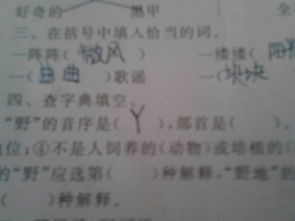 好奇的 黑甲 全
三、在括号中填入恰当的词。
一阵阵(微风) 一缕缕(阳
一(曲曲)歌谣 一(块块
四、查字典填空。
"野"的音序是(Y),部首是( )。
位:④不是人饲养的(动物)或培植的(
的"野"应选第( )种解释,"野地"的
( )种解释。